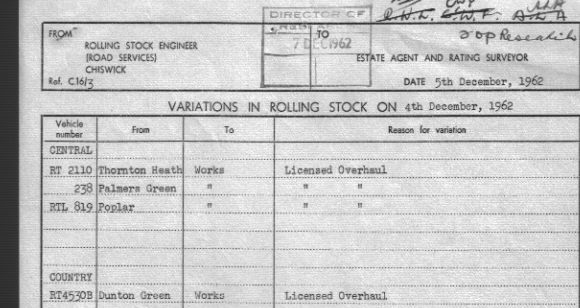 DIRECTOR OF
7 DEC 1962
FROM
TO
ROLLING STOCK ENGINEER
(ROAD SERVICES)
CHISWICK
ESTATE AGENT AND RATING SURVEYOR
Ref. C16/3
DATE 5th December, 1962
VARIATIONS IN ROLLING STOCK ON 4th December, 1962
Vehicle number From To Reason for variation
CENTRAL
RT 2110 Thornton Heath Works Licensed Overhaul
238 Palmers Green " " "
RTL 819 Poplar " " "
COUNTRY
RT4530B Dunton Green Works Licensed Overhaul